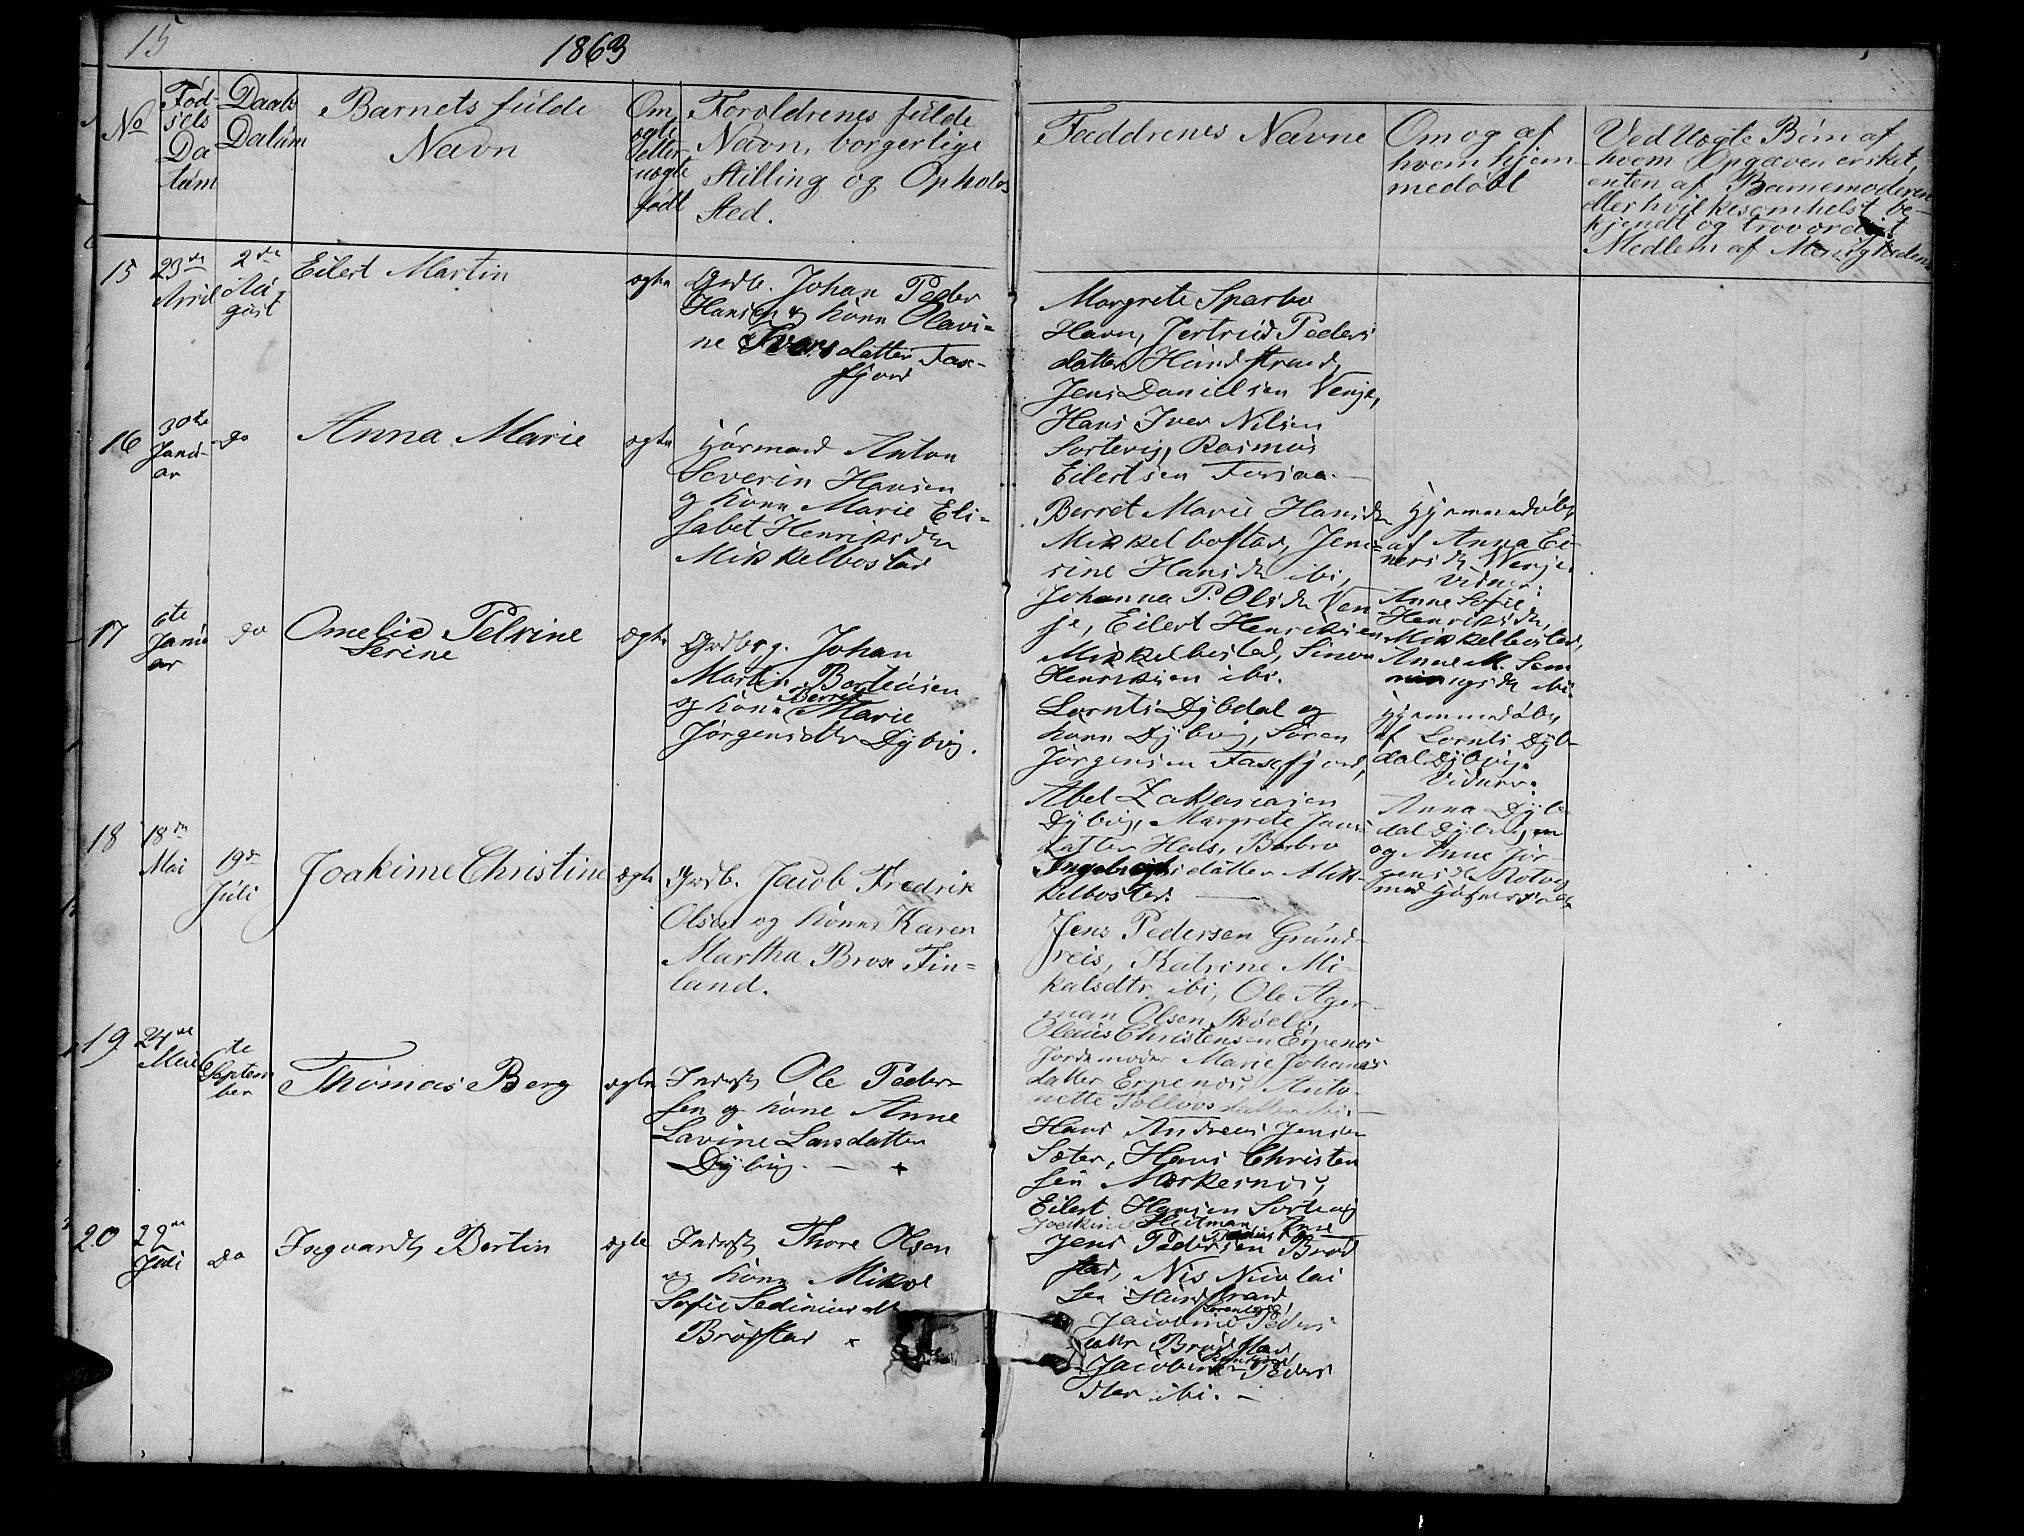 15
1863
No
Fød-
sels
Da
tum
Daabs
Datum
Barnets fulde
Navn
Om
ægte
eller
uægte
født
Forældrenes fulde
Navn, borgerlige
Stilling og Opholds
Sted.
Faddrenes Navne
Om og af
hvem hjem
medøbt
Ved Uægte Børn af
hvem Opgaven er sket,
enten af Barnemoderen
eller hvilkesomhelst be-
kjendt og troværdigt
Medlem af Menigheden
15
23de
April
2den
Au-
gust
Eilert Martin
ægte
Grdb. Johan Peder
Hansen og Kone Olavi-
ne Iversdatter Fax-
fjord
Margrete Sparbo
Havn, Jertrud Peders
datter Hundstrand,
Jens Danielsen Venje,
Hans Iver Nilsen
Sortevig, Rasmus
Eilertsen Forsaa. —
16
30te
Janu-
ar
do
Anna Marie
ægte
Husmand Anton
Severin Hansen
og Kone Marie Eli-
sabet Henriksdr
Mikkelbostad
Berret Marie Hansdr
Mikkelbostad, Jen-
sine Hansdr ibi,
Johanna P. Olsdr Ven
je, Eilert Henriksen
Mikkelbostad, Simon
Henriksen ibi.
Hjemmedøbt
af Anna Ei-
nersdr Venje.
Vidner:
Anne Sofie
Henriksdr,
Mikkelbostad,
Anne M. Sem
ningsdr ibi.
17
6te
Janu
ar
do
Omelie Petrine
Serine
ægte
Grdbrg. Johan
Martin Berteusen
og Kone Berret
Marie
Jørgensdtr Dybvig.
Lornts Dybdal og
Kone Dybvig, Søren
Jørgensen Faxfjord,
Abel Zakariasen
Dybvig, Margrete Jans
datter Hals, Berbro
Ingebrigtsdatter Mik-
kelbostad. —
Hjemmedøbt
af Lornts Dyb-
dal Dybvig.
Vidner:
Anna Dyb-
dal Dybvig,
og Anne Jør-
gensdr Rotvig
18
18de
Mai
19de
Juli
Joakime Christine
ægte
Grdb. Jacob Fredrik
Olsen og Kone Karen
Martha Brox Fin-
land.
Jens Pedersen Grund-
reis, Katrine Mi-
kalsdtr ibi, Ole Ager-
man Olsen Skøelv,
Olaus Christensen Erpenes
Jordemoder Marie Johannes
datter Erpenes, Anto-
nette Tollevsdatter ibi. —
19
24de
Mai
6te
Septem
ber
Thomas Berg
ægte
Inderst Ole Peder-
sen og Kone Anne
Lavine Larsdatter
Dybvig. —
Hans Andreas Jensen
Sæter, Hans Christen
sen Mærkesnes,
Eilert Hansen Sortevig
Joakime Heitman, Anne
20
29de
Juli
do
Ingvardt Bertin
ægte
Inderst Thore Olsen
og Kone Mikal
Sofie Sediniusdtr
Brøstad
Jens Pedersen Brød
stad, Nis Nicolai
sen Hundstrand
Jacobine Peders
datter Brødstad
Jacobine Peders
dter ibi. —